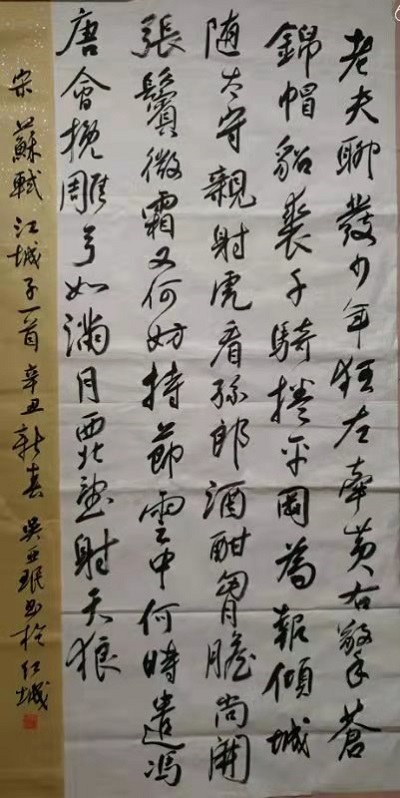 老夫聊發少年狂左牽黃右擎蒼
錦帽貂裘千騎捲平岡為報傾城
隨太守親射虎看孫郎酒酣胸膽尚開
張鬢微霜又何妨持節雲中何時遣馮
唐會挽雕弓如滿月西北望射天狼
宋蘇軾江城子一首辛丑新春吳亞珉書於江城